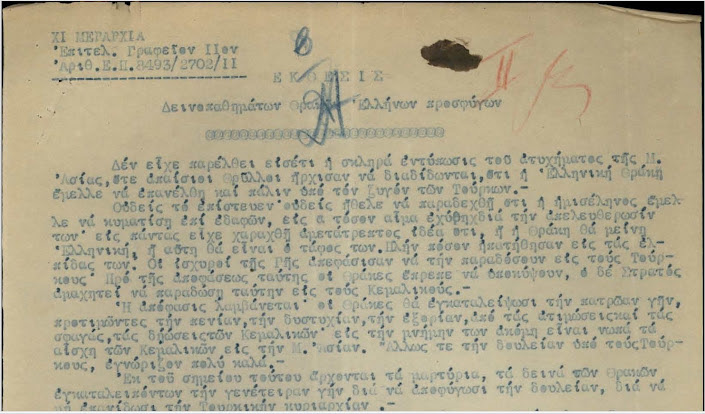 ΧΙ ΜΕΡΑΡΧΙΑ
Ἐπιτελ. Γραφεῖον ΙΙον
Ἀριθ.Ε.Π.8493/2702/ΙΙ
ΕΚΘΕΣΙΣ
Δεινοπαθημάτων Ἑλλήνων προσφύγων
Δέν εἶχε παρέλθει εἰσέτι ἡ σκληρά ἐντύπωσις τοῦ ἀτυχήματος τῆς Μ.
Ἀσίας,ὅτε ἀπαίσιοι θρῦλλοι ἤρχισαν νά διαδίδωνται,ὅτι ἡ Ἑλληνική Θράκη
ἔμελλε νά ἐπανέλθῃ καί πάλιν ὑπό τόν ζυγόν τῶν Τούρκων.-
Οὐδείς τό ἐπίστευεν οὐδείς ἤθελε νά παραδεχθῇ ὅτι ἡ ἡμισέληνος ἔμελ-
λε νά κυματίσῃ ἐπί ἐδαφῶν, εἰς ἅ τόσον αἷμα ἐχύθηδιά τήν ἀπελευθέρωσίν
των· εἰς πάντας εἶχε χαραχθῆ ἀμετάτρεπτος ἰδέα ὅτι, ἤ ἡ Θράκη θά μείνῃ
Ἑλληνική, ἤ αὕτη θά εἶναι ὁ τάφος των.Πλήν πόσον ἠπατήθησαν εἰς τάς ἐλ-
πίδας των. Οἱ ἰσχυροί τῆς Γῆς ἀπεφάσισαν νά τήν παραδόσουν εἰς τούς Τούρ-
κους· Πρό τῆς ἀποφάσεως ταύτης οἱ Θρᾶκες ἔπρεπε νά ὑποκύψουν, ὁ δέ Στρατός
ἀμαχητεί νά παραδώσῃ ταύτην εἰς τούς Κεμαλικούς.-
Ἡ ἀπόφασις λαμβάνεται· οἱ Θρᾶκες θά ἐγκαταλείψωσι τήν πατρῴαν γῆν,
προτιμῶντες τήν πενίαν,τήν δυστυχίαν,τήν ἐξορίαν,ἀπό τάς ἀτιμώσειςκαί τάς
σφαγάς,τάς δηώσειςτῶν Κεμαλικῶν· εἰς τήν μνήμην των ἀκόμη εἶναι νωπά τά
αἴσχη τῶν Κεμαλικῶν εἰς τήν Μ. Ἀσίαν. Ἄλλως τε τήν δουλείαν ὑπό τούςΤούρ-
κους, ἐγνώριζον πολύ καλά.-
Ἐκ τοῦ σημείου τούτου ἄρχονται τά μαρτύρια, τά δεινά τῶν Θρακῶν
ἐγκαταλειπόντων τήν γενέτειραν γῆν διά νά ἀποφύγωσι τήν δουλείαν, διά νά
μή ἐπανίδωσι τήν Τουρκικήν κυριαρχίαν .-